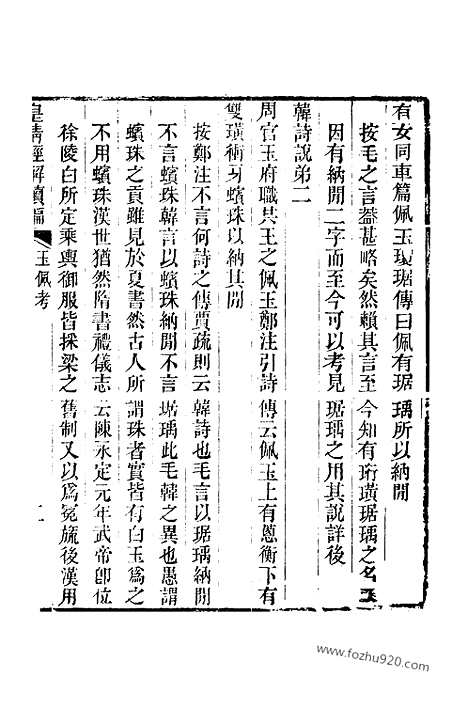 有女同車篇佩玉瓊琚傳曰佩有琚瑀所以納閒
按毛之言葢甚略矣然賴其言至今知有珩璜琚瑀之名又
因有納閒二字而至今可以考見琚瑀之用其說詳後
韓詩說第二
周官玉府職共王之佩玉鄭注引詩傳云佩玉上有蔥衡下有
雙璜衝牙蠙珠以納其閒
按鄭注不言何詩之傳賈疏則云韓詩也毛言以琚瑀納閒
不言蠙珠韓言以蠙珠納閒不言琚瑀此毛韓之異也愚謂
蠙珠之貢雖見於夏書然古人所謂珠者實皆有白玉爲之
不用蠙珠漢世猶然隋書禮儀志云陳永定元年武帝卽位
徐陵白所定乘輿御服皆採梁之舊制又以爲冕旒後漢用
皇淸經解續編
玉佩考
二
www.fozhu920.com